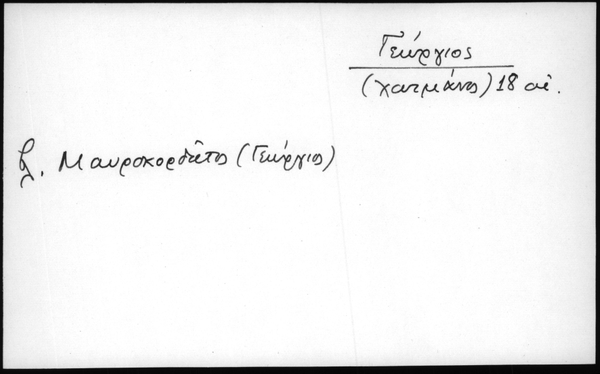 Γεώργιος
(χατμάνος) 18 αἰ.
βλ. Μαυροκορδᾶτος (Γεώργιος)